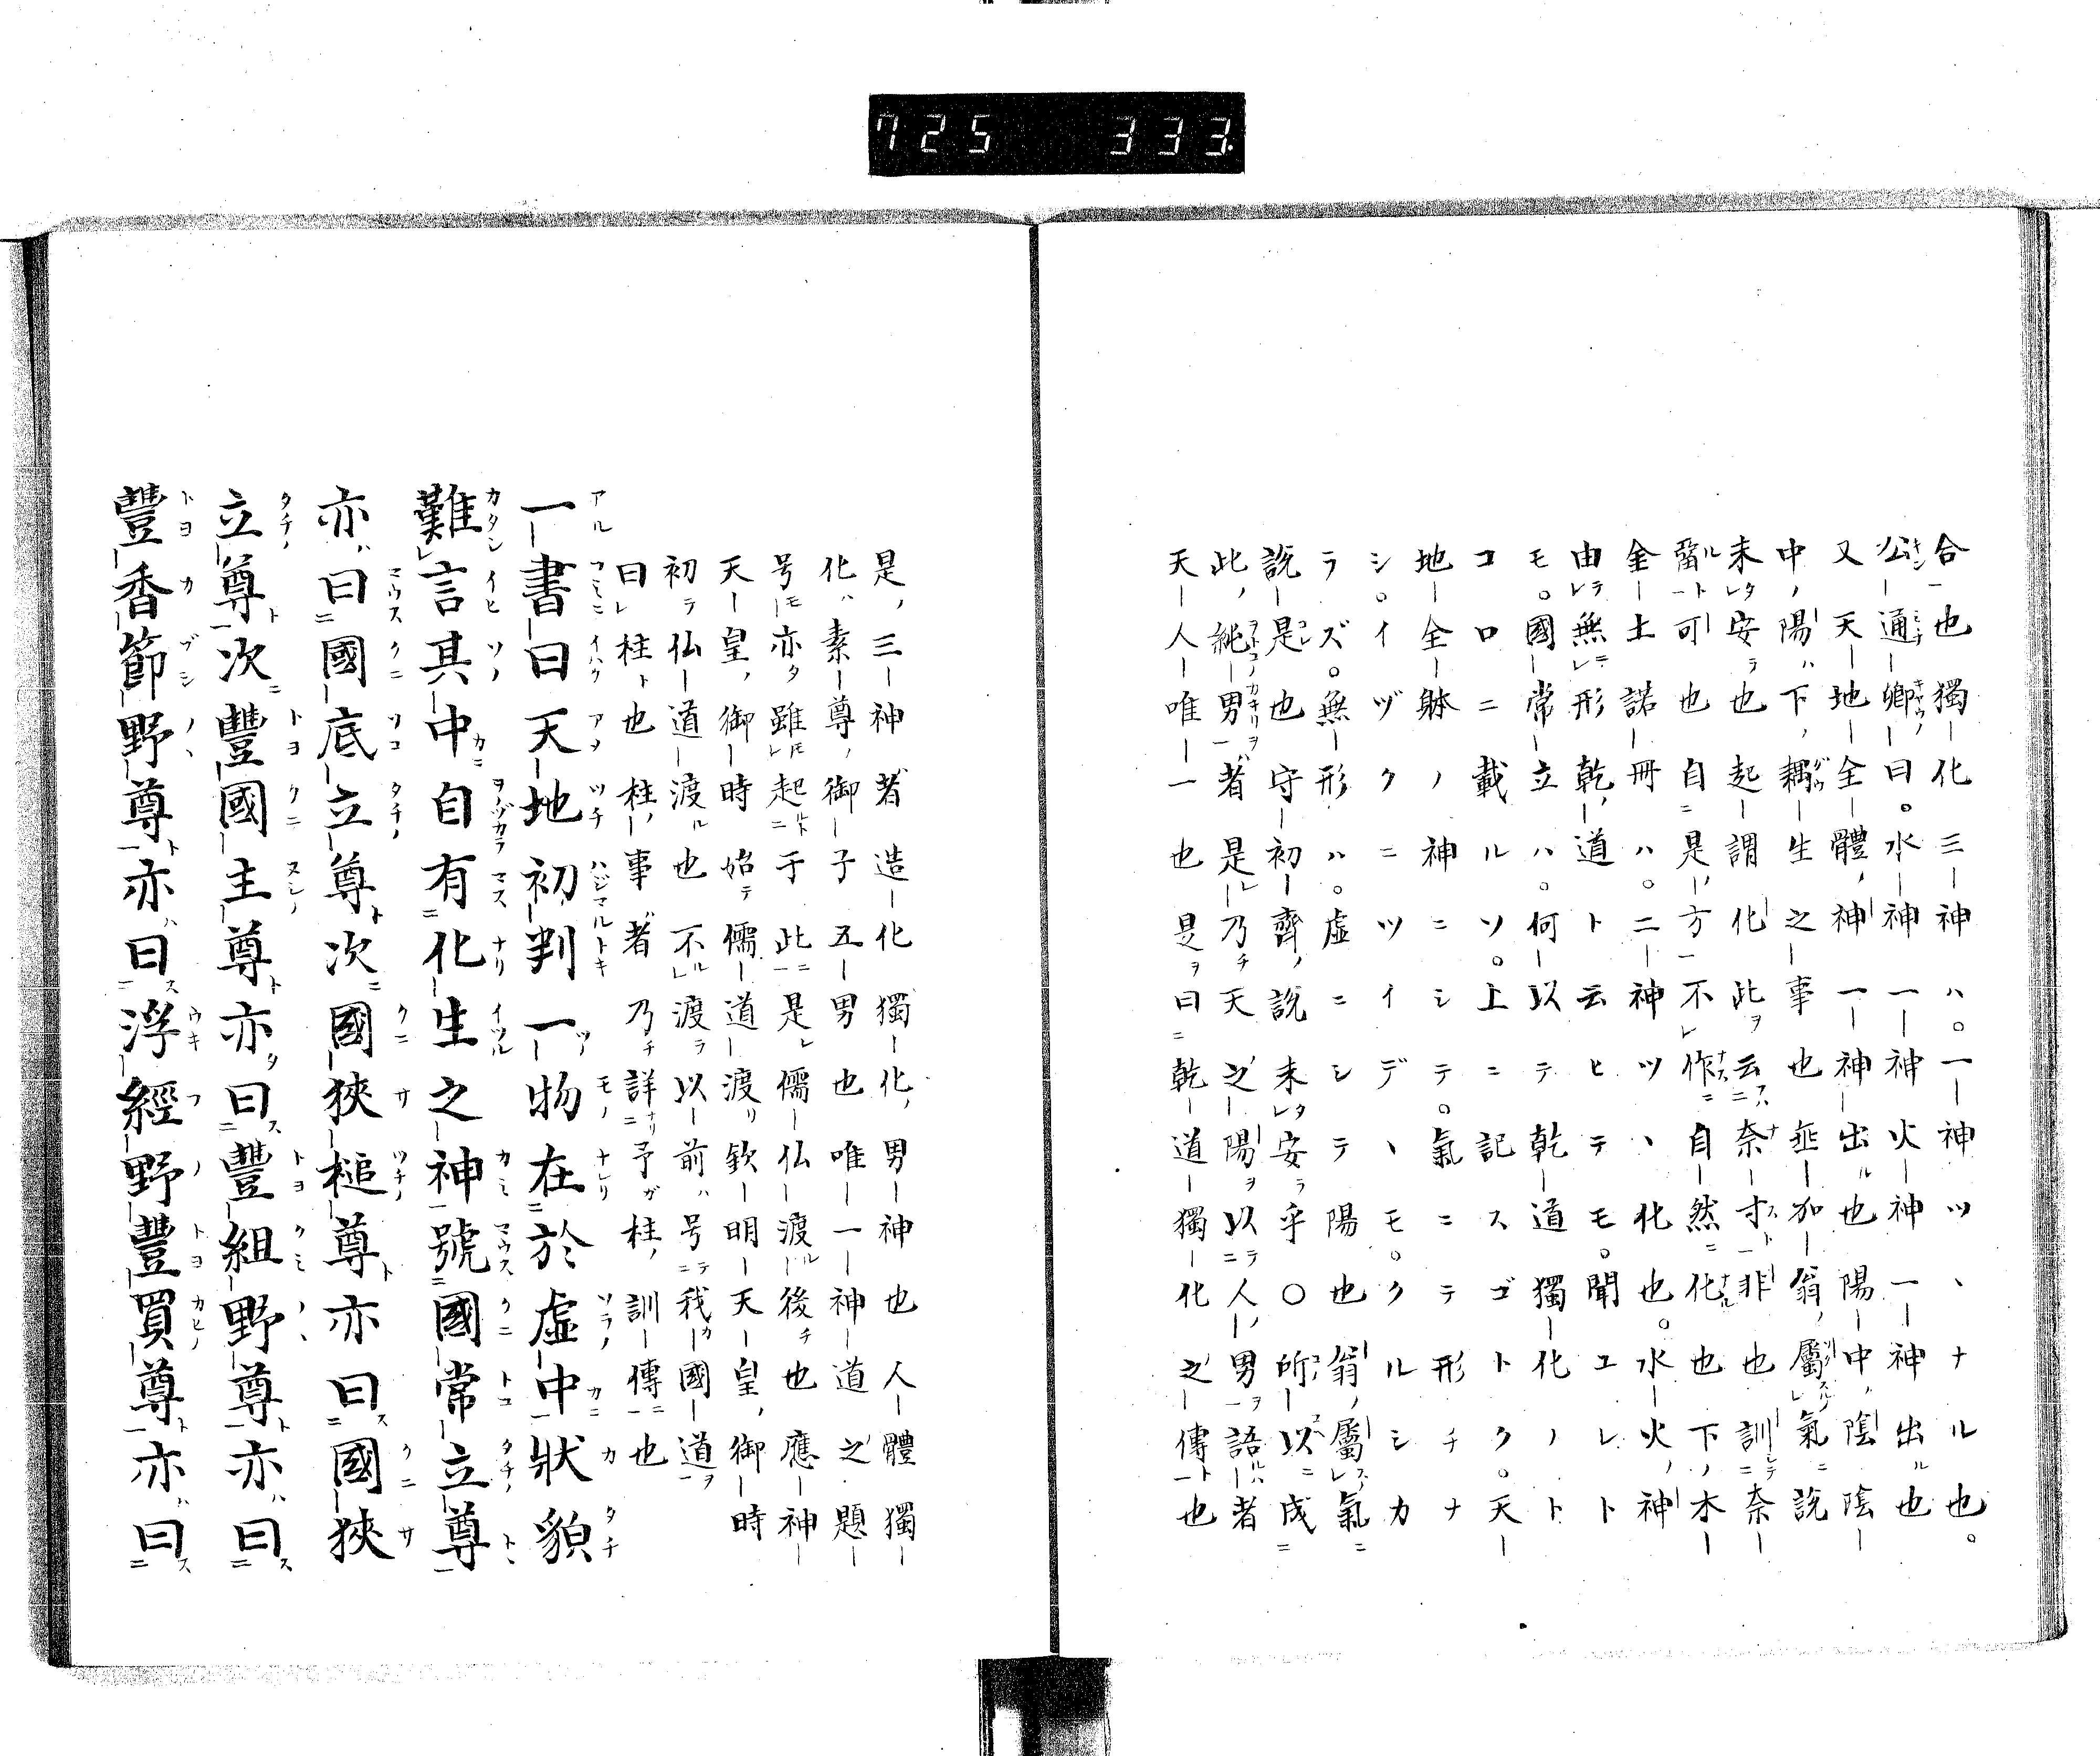 725 333.
合也獨化三神ハ。一神ツヽナル也。
公通卿曰。水神一神火神一神出ル也
又天地全體神一神出ル也陽中陰陰
中陽下耦生之事也亟加翁屬氣ニ說
未安也起謂化此ヲ云奈寸非也訓奈
可也自是方不作自然ニ化也下木
金土諾冊ハ。二神ツヽ化也。水火神
由無形乾道ト云ヒテモ。聞ユレト
モ。國常立ハ。何以テ乾道獨化ノト
コロニ載ルソ。上ニ記スゴトク。天
地全躰ノ神ニシテ。氣ニテ形チナ
シ。イヅクニツイデヽモ。クルシカ
ラズ。無形ハ。虛ニシテ陽也翁屬氣ニ
說是也守初齊說未安乎〇所以成
此純男者是乃チ天之陽ヲ以テ人男ヲ語者
天人唯一也是ヲ曰乾道獨化之傳ト也
是三神者造化獨化男神也人體獨
化ハ素尊御子五男也唯一神道之題
号モ亦雖起于此是儒仏渡後也應神
天皇御時始テ儒道渡リ欽明天皇御時
初テ仏道渡ル也不渡以前ハ号我國道ヲ
曰柱ト也柱事者乃チ詳予ガ柱訓傳也
一書曰天地初判一物在於虛中狀貌
難言其中自有化生之神號國常立尊
亦曰國底立尊次國狹槌尊亦曰國狹
立尊次豐國主尊亦曰豐組野尊亦曰
豐香節野尊亦曰浮經野豐買尊亦曰